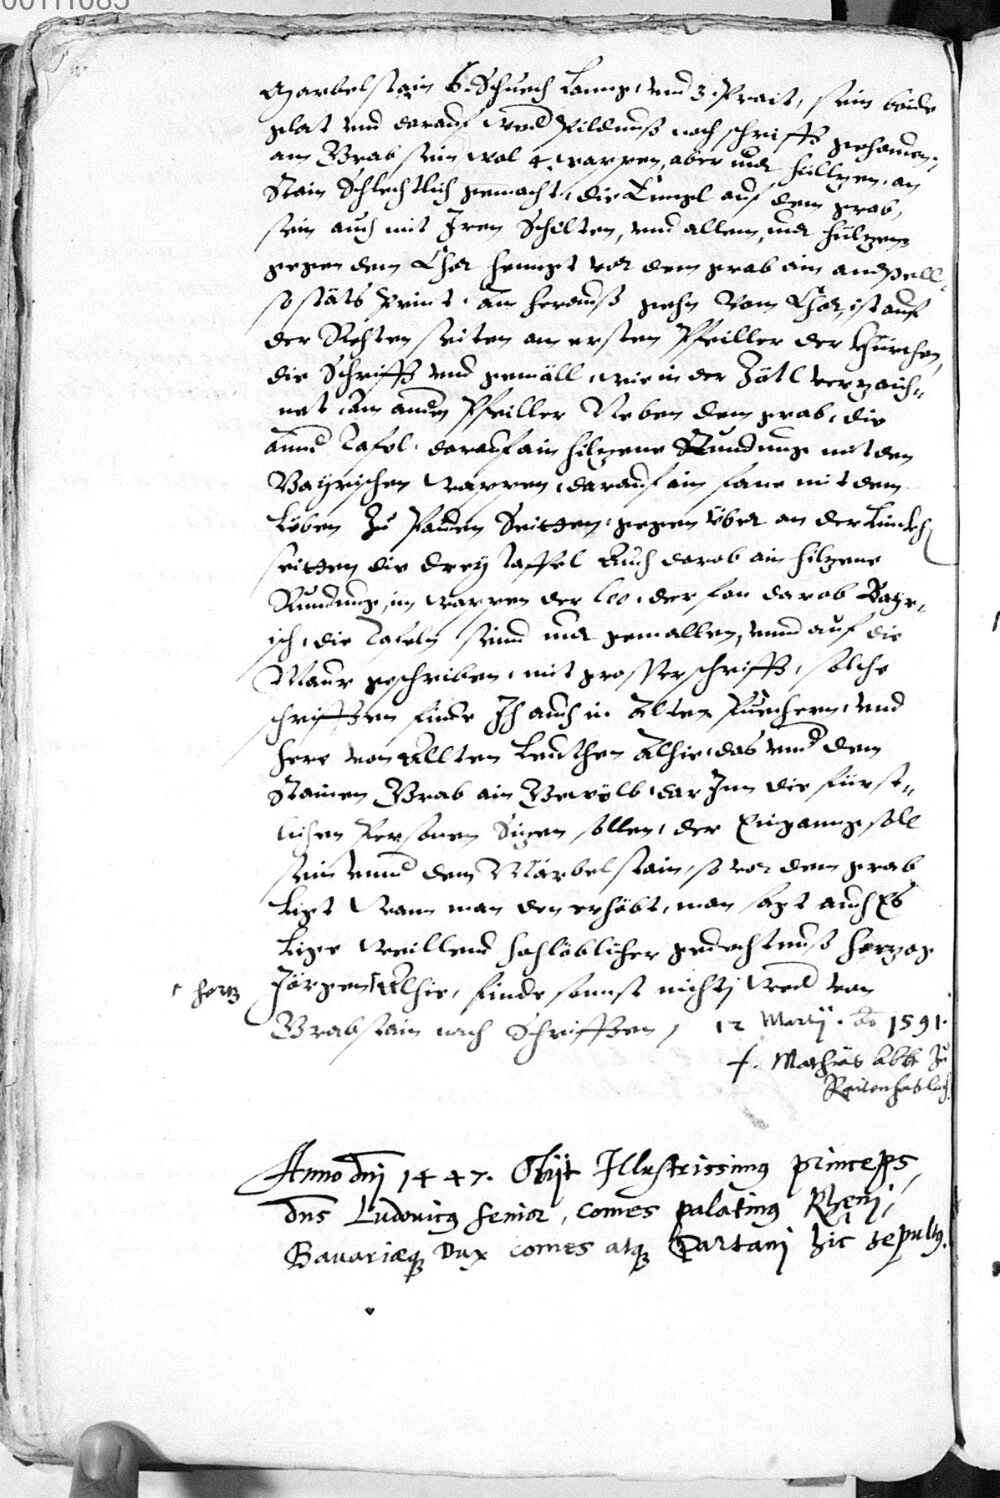 Marbelstain 6 Schuech lanng, vnd 3 Prait, sein baide
plat vnd darauf wed Pildnuß noch schrifft gehauen,
am Grab sein wol 4 wappen, aber nur hültzen, an
Stain Schlechtlich gemacht, die Engel auf dem grab,
sein auch mit Iren Schilten, vnd allem, nur hültzen,
gegen dem Chor henngt vor dem grab ain ampell,
so stäts Print. Im herauß gehn vom Chor, ist auf
der Rechten seiten am ersten Pfeiller der Khürchen,
die Schrifft vnd gemäll, wie in der Zötl verzaich-
net, Am andern Pfeiller Neben dem grab, die
Annd Tafel, darauf ain hiltzene Rundung mit den
Bayrischen wappen, darauf ain fane mit dem
Löben Zu Paiden Seitten, gegen über an der Lincken
seitten die drey Taffel Auch darob ain hiltzene
Rundung, im wappen der leo, der fan darob Bayr-
isch, die Tafeln seind nur gemallen, vnnd auf die
Maur geschriben, mit grosser schrifft, solche
schrifften finde Ich auch in Alten Püechern, vnd
here von Allten Leuthen Alhie, das vnd dem
Stainen Grab ain Gewölb, dar Inn die fürst-
lichen Personen Ligen sollen, der Eingang soll
sein vnnd dem Marbelstain, so vor dem grab
Ligt Wann man den erhöbt, man sagt auch Es
Lige weillend hochlöblicher gedechtnuß herzog
Jörgen Alhie, finde sonnst nichts wed von
hertz
Grabstain nach Schrifften, 12 Martij. Ao 1591.
F. Mathias Abbt Zu
Raitenhaslach.
Anno dnj 1447. Obijt Illustrissimus princeps,
dns Ludovicus senior, comes palatinus Rhenj,
Bavariæq Dux comes atq Gartanj hic sepultus.